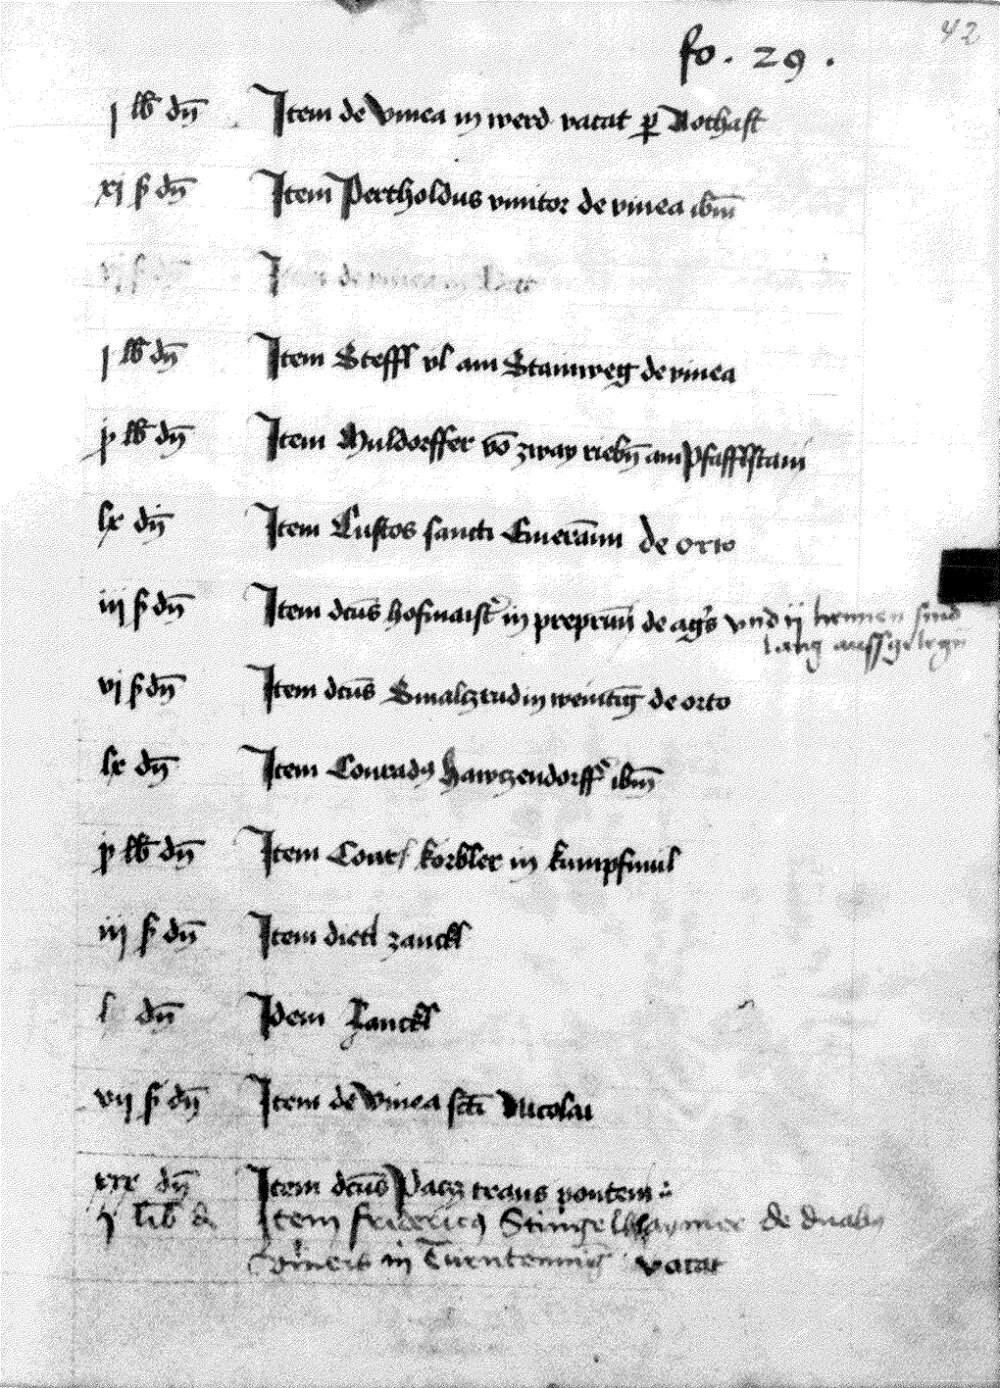 42
fo. 29.
j lb dn̄ Item de vinea in werd vacat
xj ß dn̄ Item Pertholdus vinitor de vinea ibm̄
vj ß dn̄ Item de vinea in
j lb dn̄ Item Steffl vl am Stainweg de vinea
lb dn̄ Item Muldorffer vō zway riebn̄ am Pfafflstain
lx dn̄ Item Custos sancti Emerām̄ de orto
iij ß dn̄ Item dcūs hofmaist' in preprun̄ de ag's vnd ij hennen sind
lang aussgelegn
vj ß dn̄ Item dcūs in weintīg de orto
lx dn̄ Item Conradꝰ hawtzendorff' ibm̄
lb dn̄ Item korbler in kumpfmul
iij ß dn̄ Item dietl zanckl
l dn̄ Idem Zanckl
vij ß dn̄ Item de vinea sc̄ti Nicolai
xxx dn̄ Item dcūs Patz trans pontem
lib d Item fridericꝰ de duabꝰ
vineis in vacat